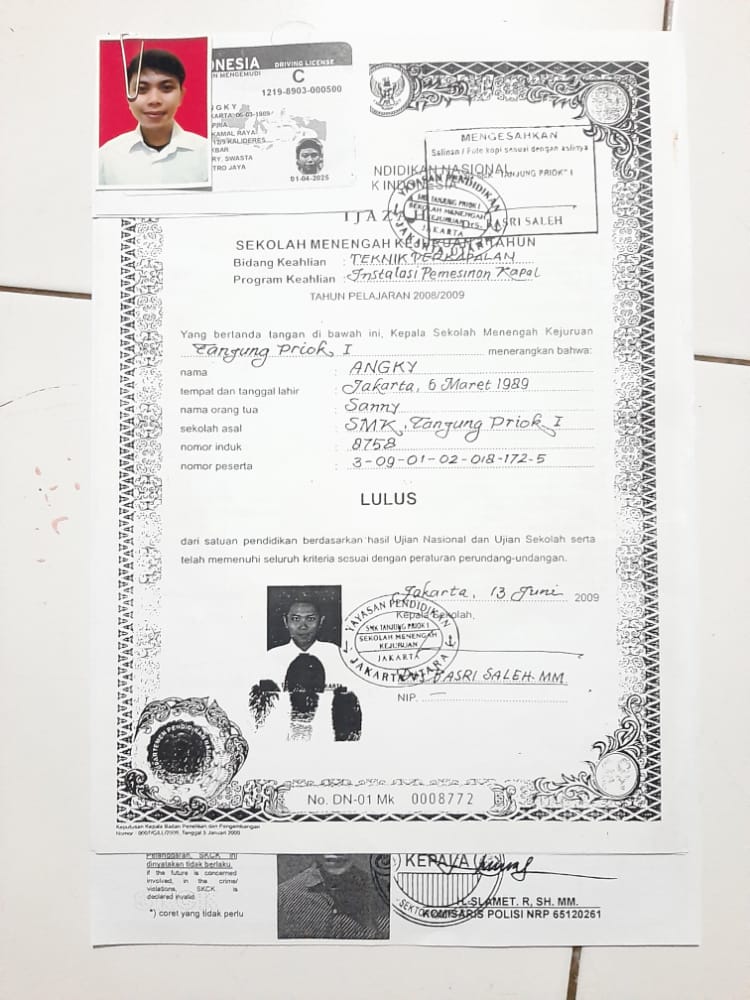 NESIA DRIVING LICENSE
N MENGEMUDI
C
1219-8903-000500
NGKY
KARTA, 06-03-1989
PRIA
KAMAL RAYA
12/9 KALIDERES
KBAR
RY. SWASTA
TRO JAYA
01-04-2025
MENGESAHKAN
Salinan / Foto kopi sesuai dengan aslinya
"TANJUNG PRIOK" I
NDIDIKAN NASIONAL
K INDONESIA
YAYASAN PENDIDIKAN
SMK TANJUNG PRIOK I
SEKOLAH MENENGAH
KEJURUAN
JAKARTA
JAKARTA UTARA
Drs. BASRI SALEH
IJAZAH
SEKOLAH MENENGAH KEJURUAN TAHUN
Bidang Keahlian : TEKNIK PERKAPALAN
Program Keahlian : Instalasi Pemesinan Kapal
TAHUN PELAJARAN 2008/2009
Yang bertanda tangan di bawah ini, Kepala Sekolah Menengah Kejuruan
Tanjung Priok I menerangkan bahwa:
nama : ANGKY
tempat dan tanggal lahir : Jakarta, 6 Maret 1989
nama orang tua : Sanny
sekolah asal : SMK, Tanjung Priok I
nomor induk : 8758
nomor peserta : 3-09-01-02-018-172-5
LULUS
dari satuan pendidikan berdasarkan hasil Ujian Nasional dan Ujian Sekolah serta
telah memenuhi seluruh kriteria sesuai dengan peraturan perundang-undangan.
Jakarta, 13 Juni 2009
Kepala Sekolah,
YAYASAN PENDIDIKAN
SMK TANJUNG PRIOK I
SEKOLAH MENENGAH
KEJURUAN
JAKARTA
JAKARTA UTARA
BASRI SALEH. MM
NIP. —
No. DN-01 Mk 0008772
Keputusan Kepala Badan Penelitian dan Pengembangan
Pelanggaran, SKCK ini
dinyatakan tidak berlaku.
if the future is concerned
involved, in the crime/
violations, SKCK is
declared invalid.
*) coret yang tidak perlu
KEPALA
SEKTOR
H. SLAMET. R, SH. MM.
KOMISARIS POLISI NRP 65120261